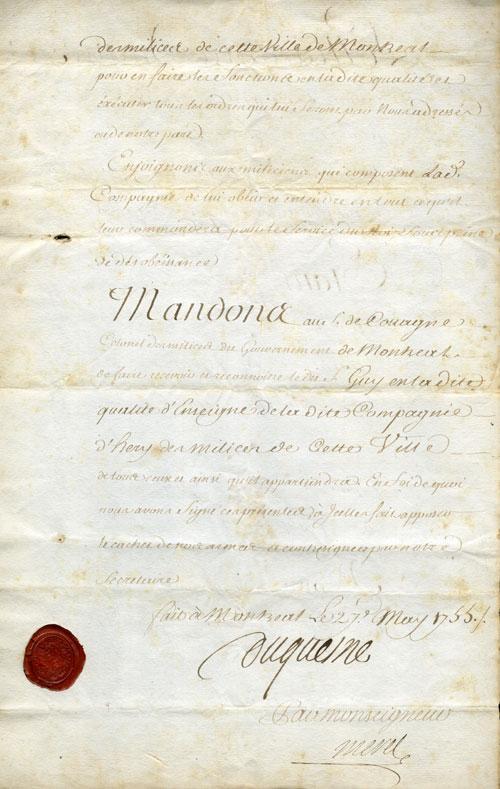 des milices de cette Ville de Montreal
pour en faire les fonctions en la dite qualité et
exécuter tous les ordres qui lui seront par Nous adressés
ou de notre part
Enjoignons aux miliciens qui composent Lad.
Compagnie de lui obéir et entendre en tout ce qu'il
leur commandera pour le Service du Roi sous peine
de désobéissance
Mandons au S. de Couagne
Colonel des milices du Gouvernement de Montreal
de faire recevoir et reconnoître le dit S. Guy en la dite
qualité d'Enseigne de la dite Compagnie
d'hery des milices de Cette Ville
de tous ceux et ainsi qu'il appartiendra En foi de quoi
nous avons signé ces présentes à Icelles fait apposer
le cachet de nos armes et contresigner par notre
Secretaire
fait à Montreal Le 27e May 1755./.
Duquesne
Par monseigneur
merel